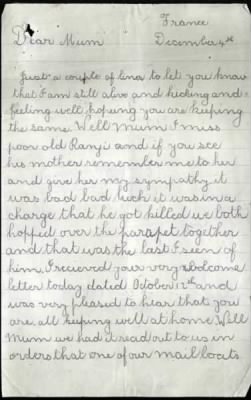 France
Dear Mum December 4th
Just a couple of lines to let you know
that I am still alive and kicking and
feeling well hoping you are keeping
the same. Well Mum I miss
poor old Ranji and if you see
his mother remember me to her
and give her my sympathy it
was bad luck it was in a
charge that he got killed we both
hopped over the parapet together
and that was the last I seen of
him. I recieved your very welcome
letter today dated October 12th and
was very pleased to hear that you
are all keeping well at home. Well
Mum we had it read out to us in
orders that one of our mail boats